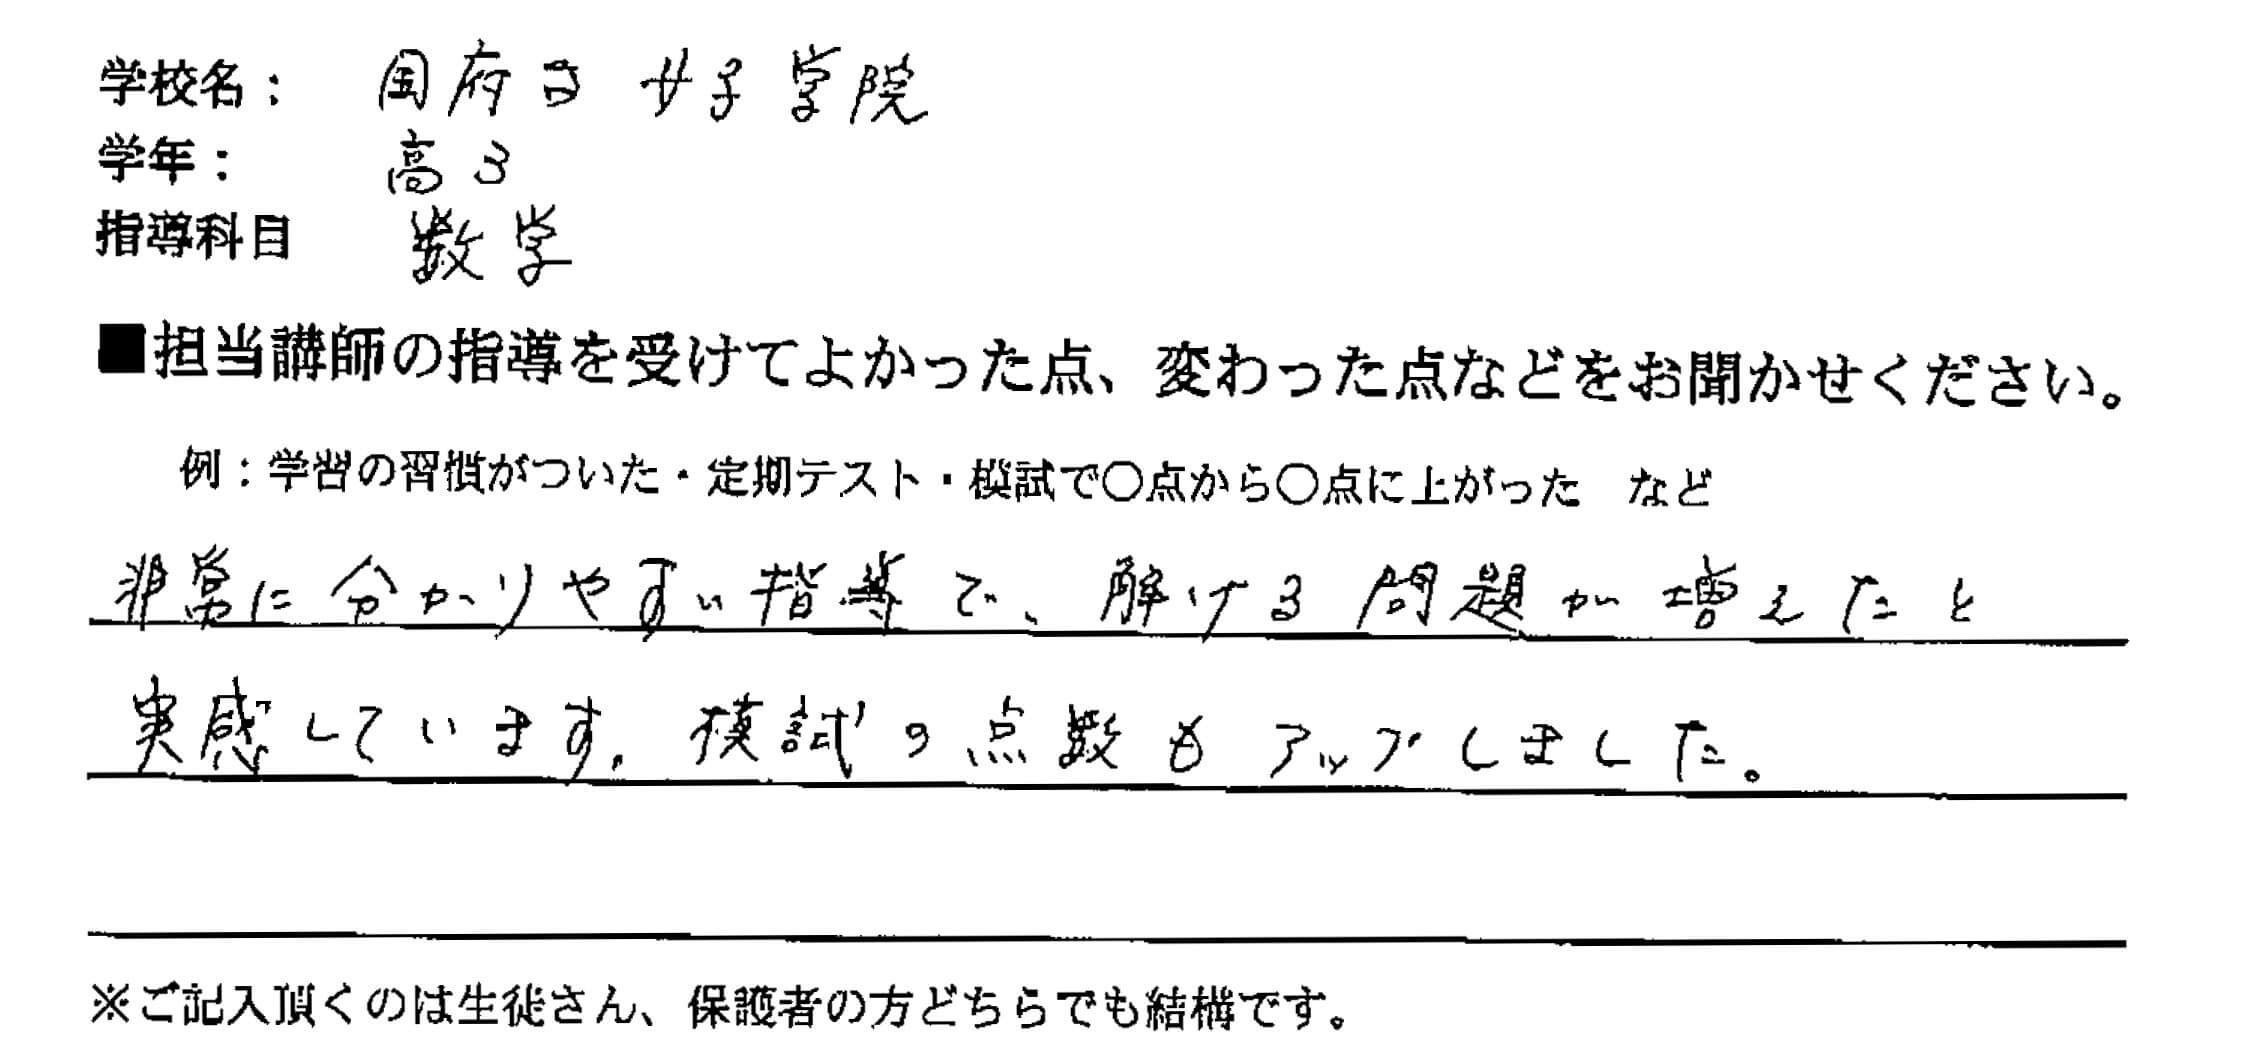 学校名： 国府台女子学院
学年： 高3
指導科目 数学
■担当講師の指導を受けてよかった点、変わった点などをお聞かせください。
例：学習の習慣がついた・定期テスト・模試で〇点から〇点に上がった　など
非常に分かりやすい指導で、解ける問題が増えたと
実感しています。模試の点数もアップしました。
※ご記入頂くのは生徒さん、保護者の方どちらでも結構です。